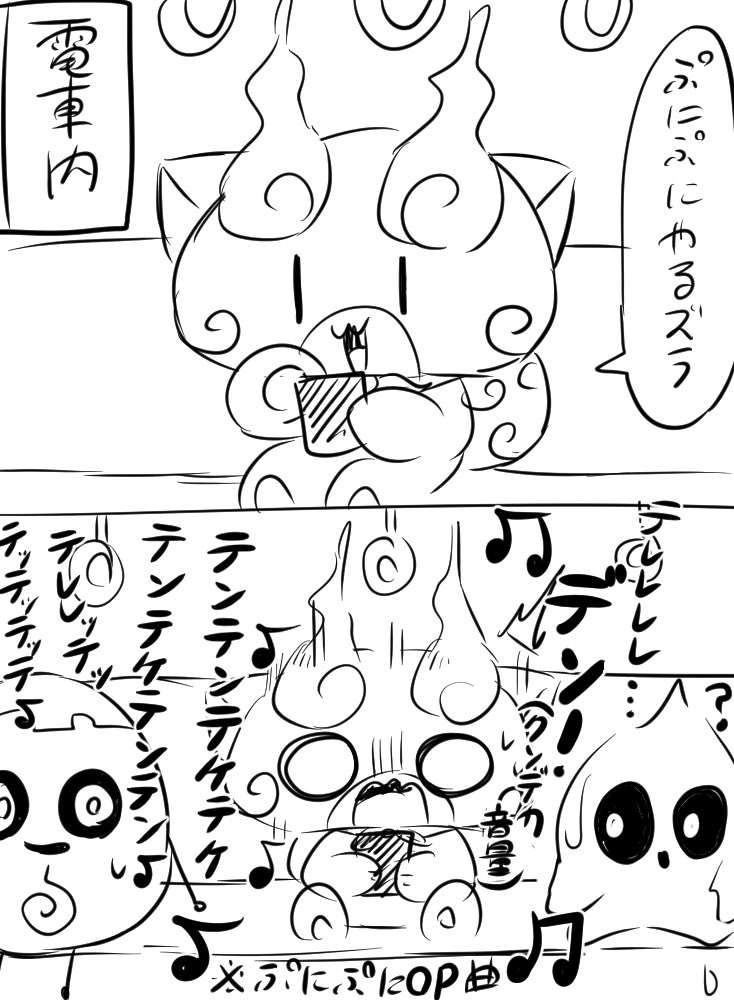 電車内
ぷにぷにやるズラ
テレレレレ
デン!
…?
クンデカ
音量
テンテンテケテケ
テンテケテンテン
テレレッテッ
テッテッテッテ
※ぷにぷにOP曲